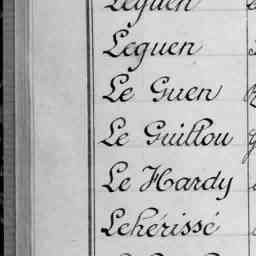 Leguen
Leguen
Le Guen
Le Guillou
Le Hardy
Lehérissé